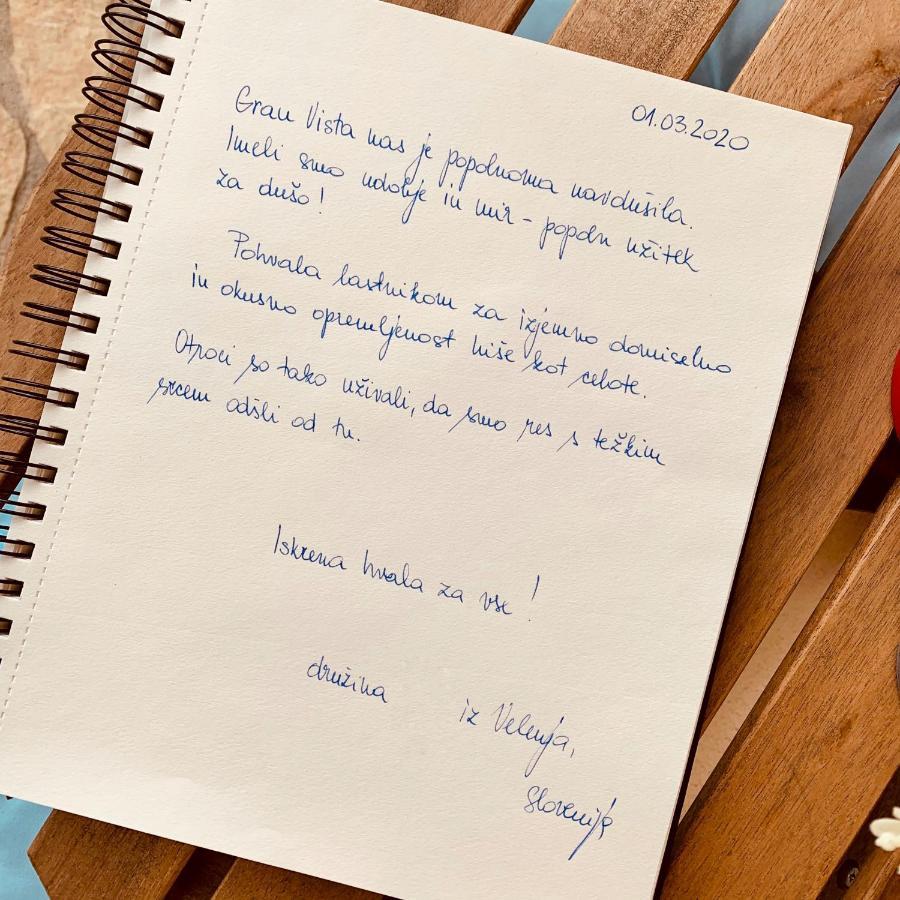 01.03.2020
Gran Vista nas je popolnoma navdušila.
Imeli smo udobje in mir - popoln užitek
za dušo!
Pohvala lastnikom za izjemno domiselno
in okusno opremljenost hiše kot celote.
Otroci so tako uživali, da smo res s težkim
srcem odšli od tu.
Iskrena hvala za vse!
družina iz Velenja,
Slovenija